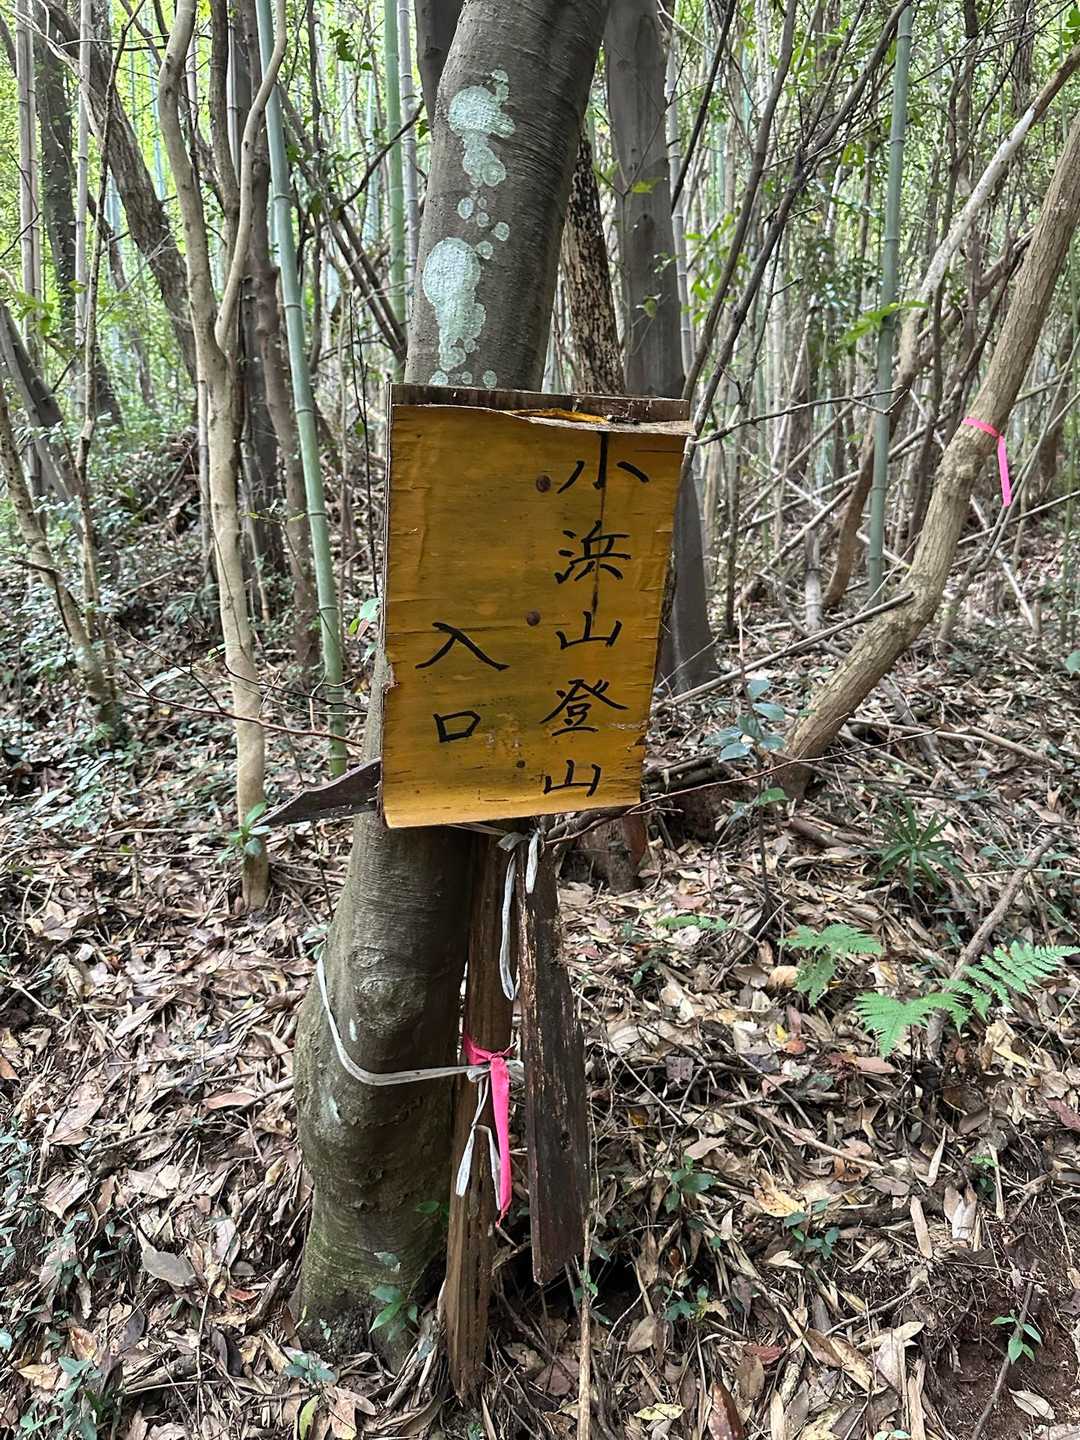 小浜山登山
入口